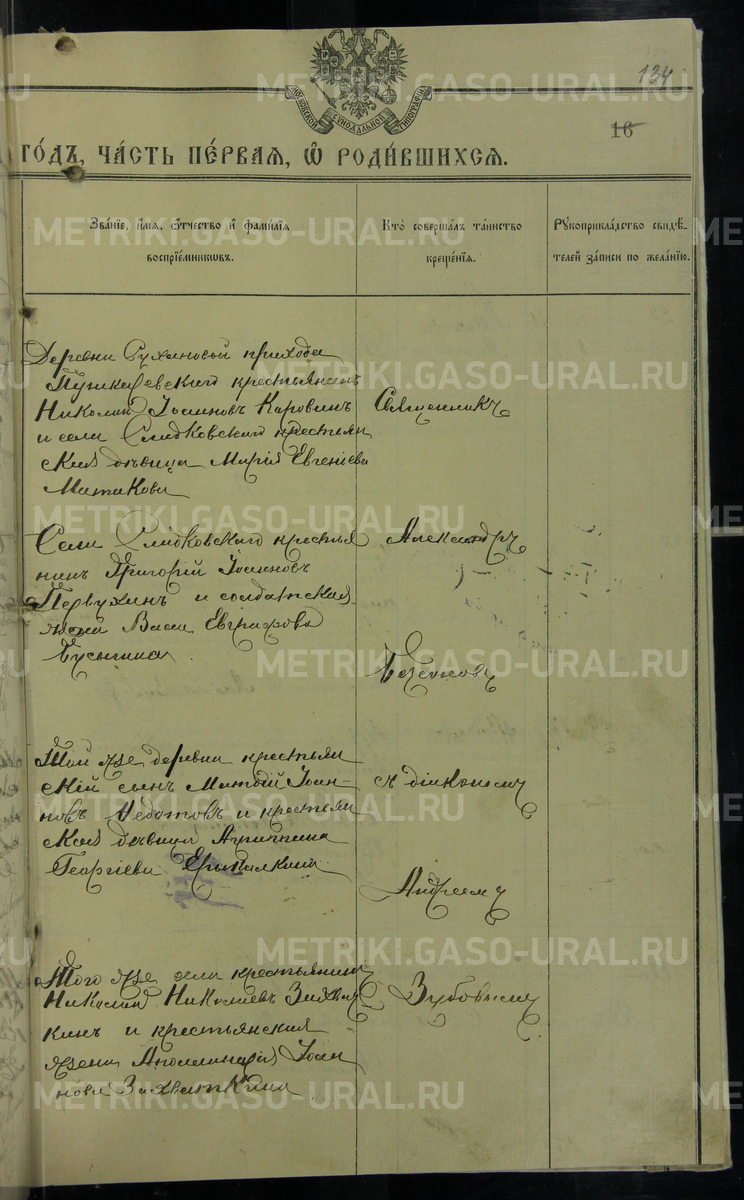 134
16
ГО́ДЪ, ЧА́СТЬ ПЕ́РВАѦ, Ѡ҆ РОДИ́ВШИХСѦ.
Зва́нїе, и҆́мѧ, ѻ҆́тчество и҆ фами́лїѧ
воспрїе́мникѡвъ.
Кто̀ соверша́лъ та́инство
креще́нїѧ.
Рꙋкоприкла́дство свидѣ́-
телей за́писи по жела́нїю.
Деревни Сухановой прихода
Пушкаревскаго крестьянинъ
Николай Іоанновъ Коровинъ
и села Сладковскаго крестьян
ская дѣвица Марія Евгеніева
Священникъ
Села Сладковскаго крестья
нинъ Григорій Іоанновъ
Первухинъ и солдатская
жена Васса Евграфова
Александръ
Той же деревни крестьян
скій сынъ Матѳій Іоан-
новъ Ѳедотовъ и крестьян
ская дѣвица Агриппина
Георгіева
съ діакономъ
Андреемъ
Того же села крестьянинъ
Николай Николаевъ
и крестьянская
жена Аполлинарія Іоан
нова Захваткина
Зубовымъ
METRIKI.GASO-URAL.RU